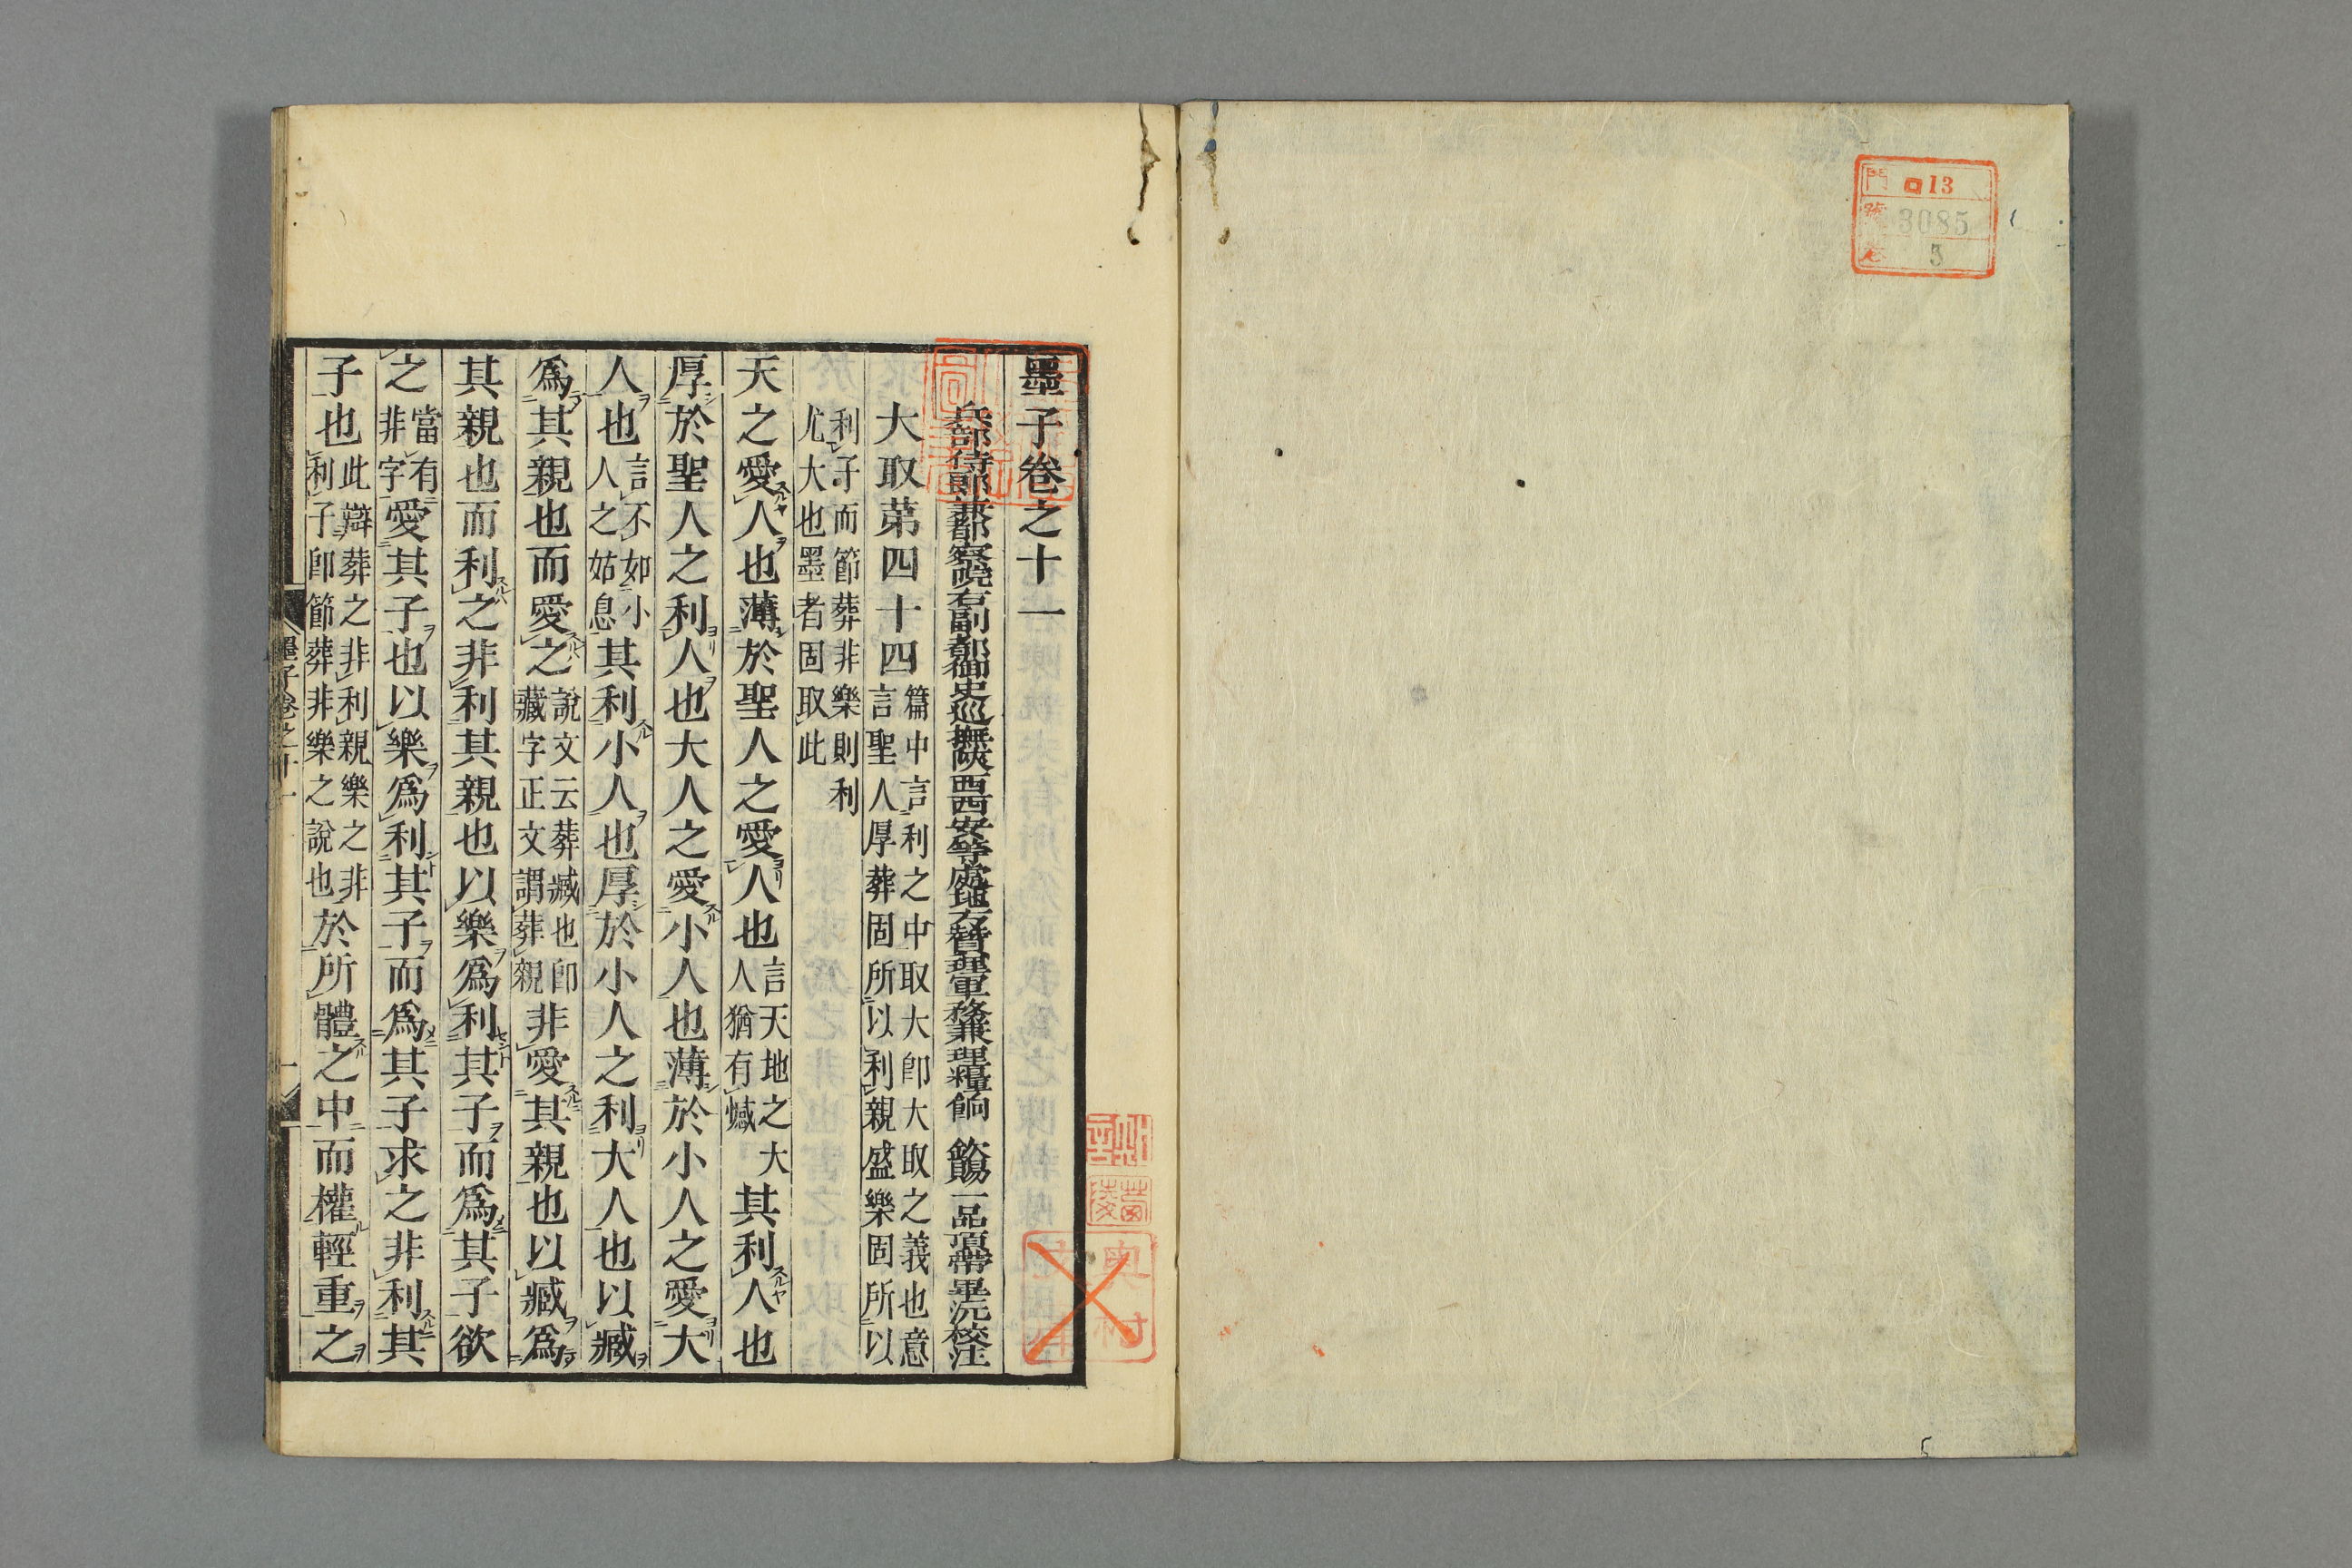 門 ロ13
號 3085
卷 5
墨子卷之十一
兵部侍郎兼都察院右副都御史巡撫陝西西安等處地方贊理軍務兼理糧餉 欽賜一品頂帶畢沅校注
大取第四十四 篇中言利之中取大卽大取之義也意
言聖人厚葬固所以利親盛樂固所以
利子而節葬非樂則利
尤大也墨者固取此
天之愛人也薄於聖人之愛人也 言天地之大
人猶有憾 其利人也
厚於聖人之利人也大人之愛小人也薄於小人之愛大
人也 言不如小
人之姑息 其利小人也厚於小人之利大人也以臧
爲其親也而愛之 說文云葬臧也卽
藏字正文謂葬親 非愛其親也以臧爲
其親也而利之非利其親也以樂爲利其子而爲其子欲
之 當有
非字 愛其子也以樂爲利其子而爲其子求之非利其
子也 此辯葬之非利親樂之非
利子卽節葬非樂之說也 於所體之中而權輕重之
墨子卷之十一
一
5